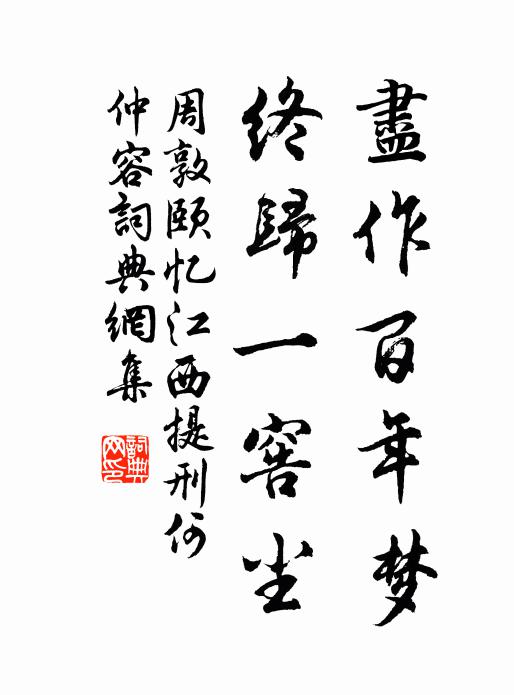 盡作百年梦
終歸一窖尘
周敦颐忆江西提刑何
仲容詞典網集
詞典网印